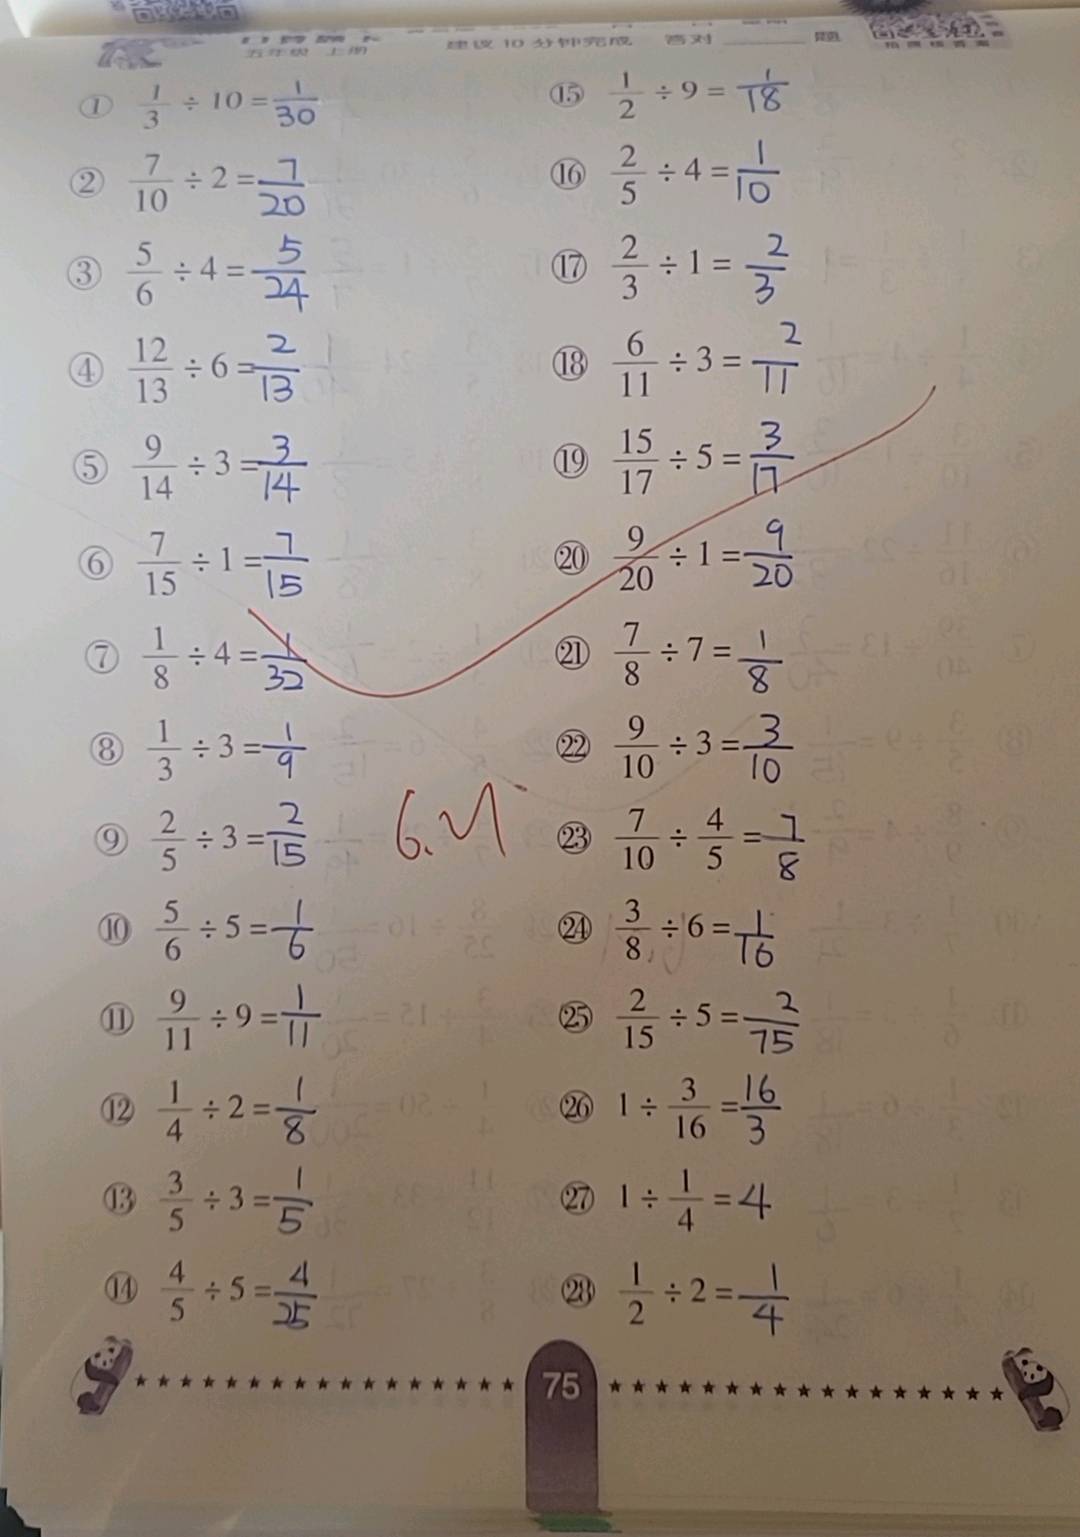 五年级 上册 建议 10 分钟完成 答对 题
① 1/3 ÷ 10 = 1/30
② 7/10 ÷ 2 = 7/20
③ 5/6 ÷ 4 = 5/24
④ 12/13 ÷ 6 = 2/13
⑤ 9/14 ÷ 3 = 3/14
⑥ 7/15 ÷ 1 = 7/15
⑦ 1/8 ÷ 4 = 1/32
⑧ 1/3 ÷ 3 = 1/9
⑨ 2/5 ÷ 3 = 2/15
⑩ 5/6 ÷ 5 = 1/6
⑪ 9/11 ÷ 9 = 1/11
⑫ 1/4 ÷ 2 = 1/8
⑬ 3/5 ÷ 3 = 1/5
⑭ 4/5 ÷ 5 = 4/25
⑮ 1/2 ÷ 9 = 1/18
⑯ 2/5 ÷ 4 = 1/10
⑰ 2/3 ÷ 1 = 2/3
⑱ 6/11 ÷ 3 = 2/11
⑲ 15/17 ÷ 5 = 3/17
⑳ 9/20 ÷ 1 = 9/20
㉑ 7/8 ÷ 7 = 1/8
㉒ 9/10 ÷ 3 = 3/10
㉓ 7/10 ÷ 4/5 = 7/8
㉔ 3/8 ÷ 6 = 1/16
㉕ 2/15 ÷ 5 = 2/75
㉖ 1 ÷ 3/16 = 16/3
㉗ 1 ÷ 1/4 = 4
㉘ 1/2 ÷ 2 = 1/4
75